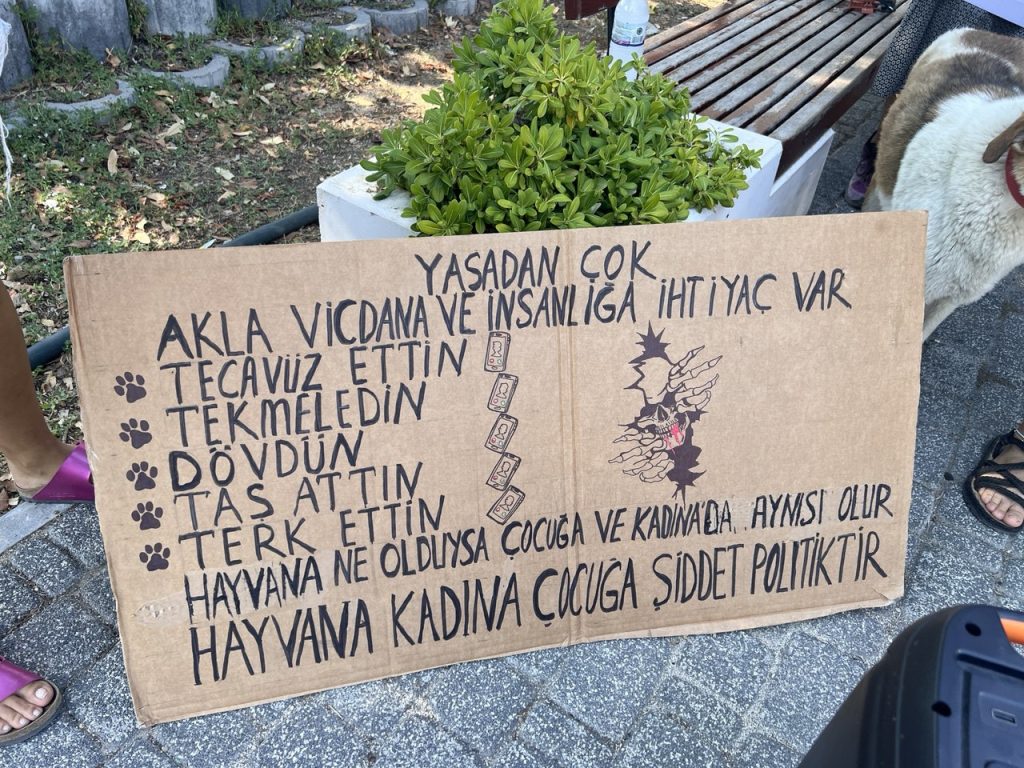 YASADAN ÇOK
AKLA VİCDANA VE İNSANLIĞA İHTİYAÇ VAR
TECAVÜZ ETTİN
TEKMELEDİN
DÖVDÜN
TAŞ ATTIN
TERK ETTİN
HAYVANA NE OLDUYSA ÇOCUĞA VE KADINA'DA AYNISI OLUR
HAYVANA KADINA ÇOCUĞA ŞİDDET POLİTİKTİR